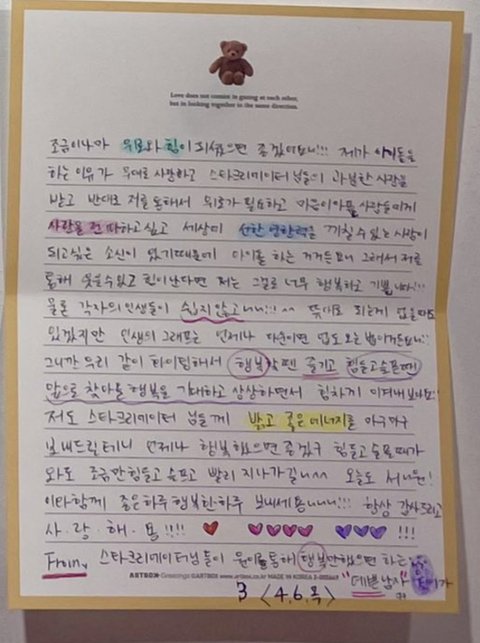 Love does not consist in gazing at each other,
but in looking together in the same direction.
조금이나마 위로와 힘이 되셨으면 좋겠어요!!! 제가 아이돌을
하는 이유가 무대로 사랑하고 스타크리에이터님들이 과분한 사랑을
받고 반대로 저를 통해서 위로가 필요하고 마음이 아픈 사람들에게
사랑을 전파하고 싶고 세상에 선한 영향력을 끼칠 수 있는 사람이
되고싶은 소신이 있기때문에 아이돌 하는 거거든요 그래서 저를
통해 웃을수있고 힘이난다면 저는 그걸로 너무 행복하고 기쁩니다!!!
물론 각자의 인생들이 쉽지않고 !!! ^^ 뜻대로 되는게 없을때도
있겠지만 인생의 그래프는 언제나 다운이면 업도 오는 법이거든요!!
그니까 우리 같이 화이팅해서 행복할땐 즐기고 힘들고슬픈땐
앞으로 찾아올 행복을 기대하고 상상하면서 힘차게 이겨내보아요!
저도 스타크리에이터 님들께 밝고 좋은 에너지를 마구마구
보내드릴테니 언제나 행복했으면 좋겠구 힘들고 슬플때가
와도 조금만 힘들고 슬프고 빨리 지나가길 ^^ 오늘도
함께 좋은하루 행복한하루 보내세용 !!! 항상 감사드리고
사.랑.해.용!!!! ♥ ♥♥♥♥ ♥♥♥ !!!
From. 스타크리에이터님들이 통해 행복만했으면 하는
ARTBOX Greetings ©ARTBOX www.artbox.co.kr MADE IN KOREA
"예쁜남자"
3 <4.6.목>